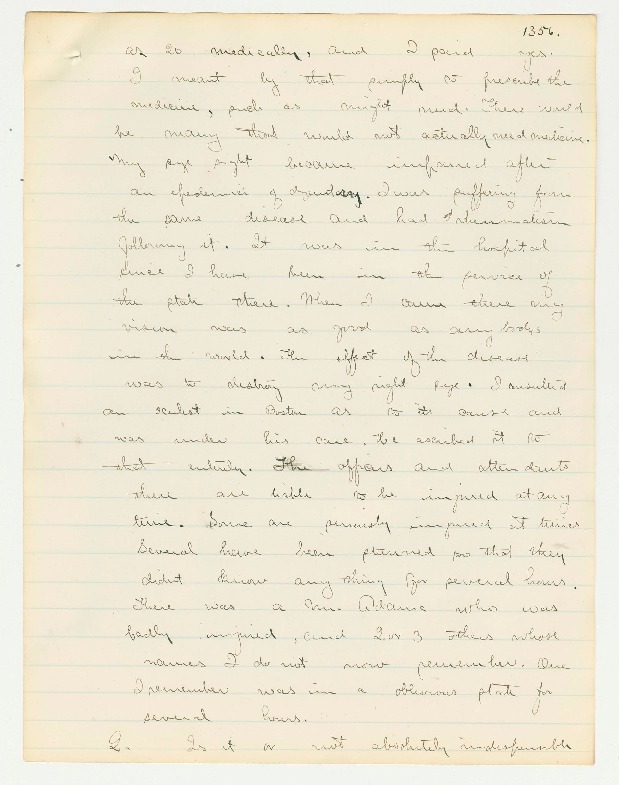 1356.
as to medically, and I said yes.
I meant by that simply to prescribe the
medicine, such as might need. There would
be many that would not actually need medicine.
My eye sight became impaired after
an epidemic of dysentery. I was suffering from
the same disease and had rheumatism
following it. It was in the hospital
since I have been in the service of
the state there. When I came there my
vision was as good as any bodys
in the world. The effect of the disease
was to destroy my right eye. I consulted
an oculist in Boston as to its cause and
was under his care. He ascribed it to
that entirely. The officers and attendants
there are liable to be injured at any
time. Some are seriously injured at times
Several have been stunned so that they
didnt know any thing for several hours.
There was a Mr. Adams who was
badly injured, and 2 or 3 others whose
names I do not now remember. One
I remember was in a oblivious state for
several hours.
Q. Is it or not absolutely indispensible